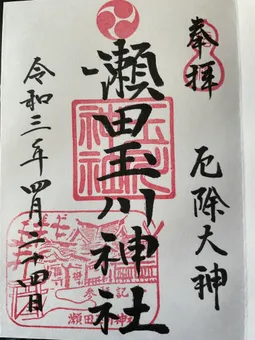 奉拝
厄除大神
瀬田玉川神社
令和三年四月二十四日
参拝記
瀬田玉川神社